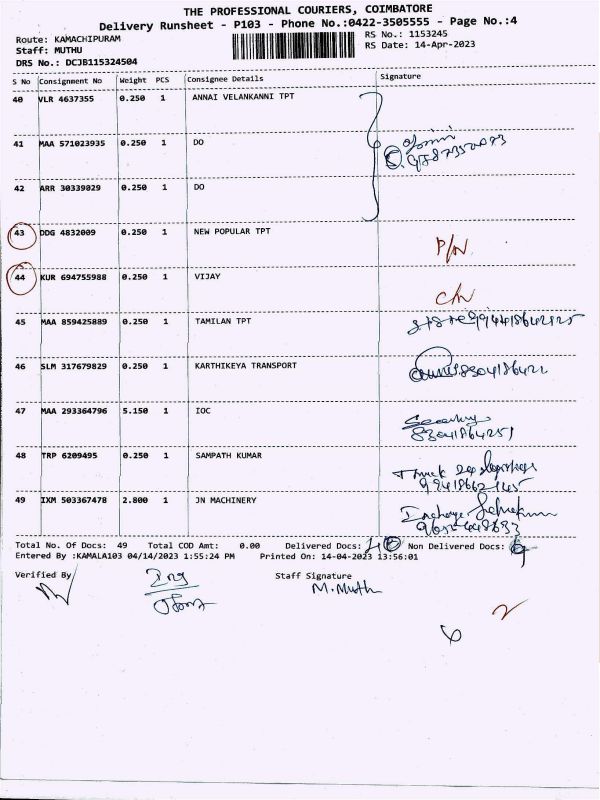 THE PROFESSIONAL COURIERS, COIMBATORE
Delivery Runsheet - P103 - Phone No.:0422-3505555 - Page No.:4
Route: KAMACHIPURAM RS No.: 1153245
Staff: MUTHU RS Date: 14-Apr-2023
DRS No.: DCJB115324504
S No Consignment No Weight PCS Consignee Details Signature
40 VLR 4637355 0.250 1 ANNAI VELANKANNI TPT
41 MAA 571023935 0.250 1 DO
42 ARR 30339029 0.250 1 DO
43 DDG 4832009 0.250 1 NEW POPULAR TPT P/N
44 KUR 694755988 0.250 1 VIJAY C/N
45 MAA 859425889 0.250 1 TAMILAN TPT
46 SLM 317679829 0.250 1 KARTHIKEYA TRANSPORT
47 MAA 293364796 5.150 1 IOC
48 TRP 6209495 0.250 1 SAMPATH KUMAR
49 IXM 503367478 2.800 1 JN MACHINERY
Total No. Of Docs: 49 Total COD Amt: 0.00 Delivered Docs: Non Delivered Docs:
Entered By :KAMALA103 04/14/2023 1:55:24 PM Printed On: 14-04-2023 13:56:01
Verified By Staff Signature
M. Muth
2
6